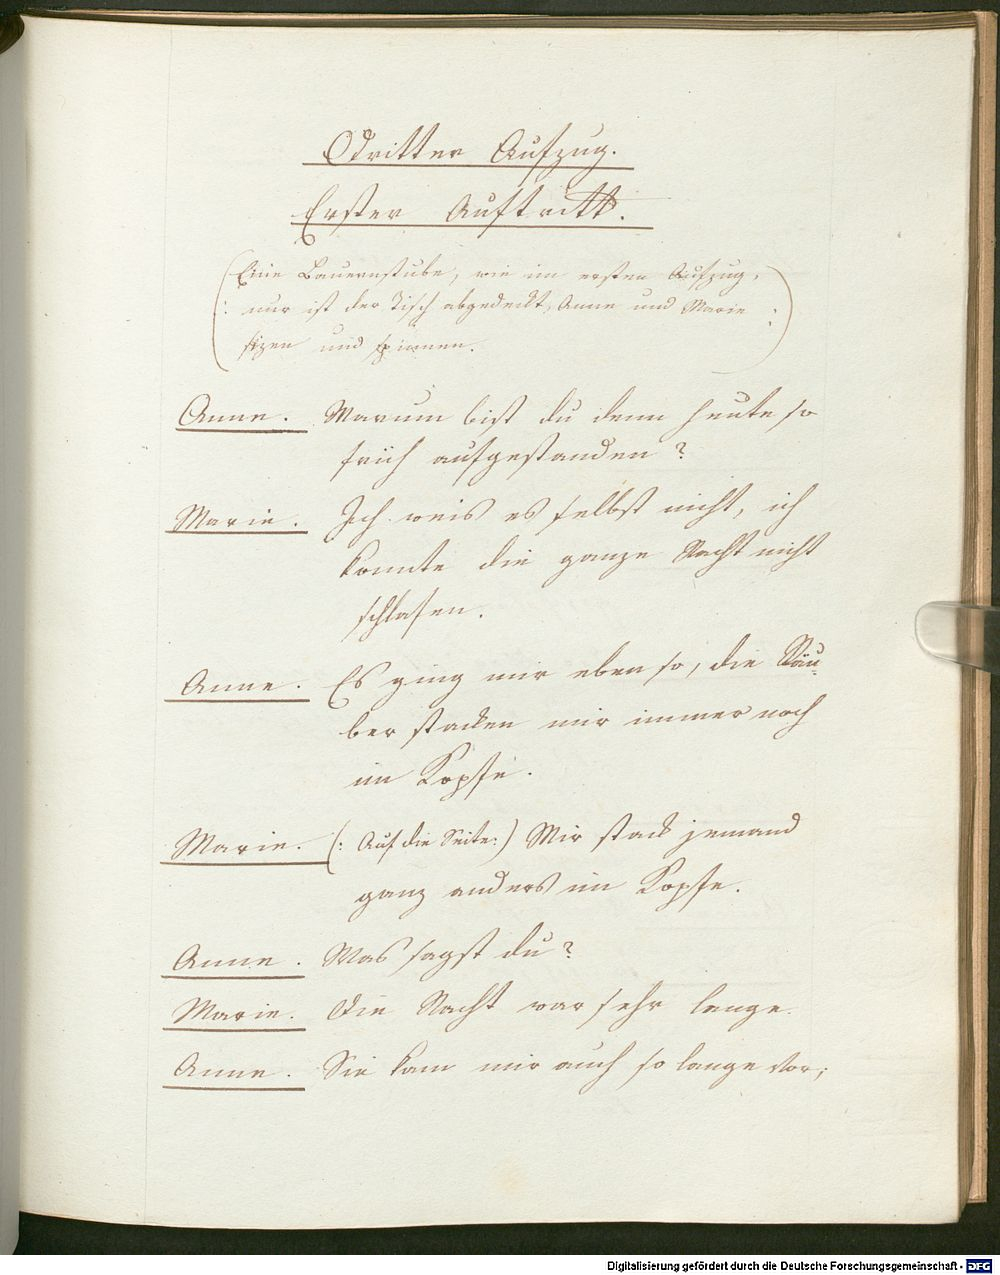 Dritter Aufzug.
Erster Auftritt.
(: Eine Bauernstube, wie im ersten Aufzug,
nur ist der Tisch abgedeckt, Anne und Marie
sizen und spinnen. :)
Anne. Warum bist du denn heute so
früh aufgestanden?
Marie. Ich weis es selbst nicht, ich
konnte die ganze Nacht nicht
schlafen.
Anne. Es ging mir eben so, die Räu-
ber stacken mir immer noch
im Kopfe.
Marie. (: Auf die Seite :) Mir stack jemand
ganz anders im Kopfe.
Anne. Was sagst du?
Marie. Die Nacht war sehr lange.
Anne. Sie kam mir auch so lange vor;
Digitalisierung gefördert durch die Deutsche Forschungsgemeinschaft - DFG